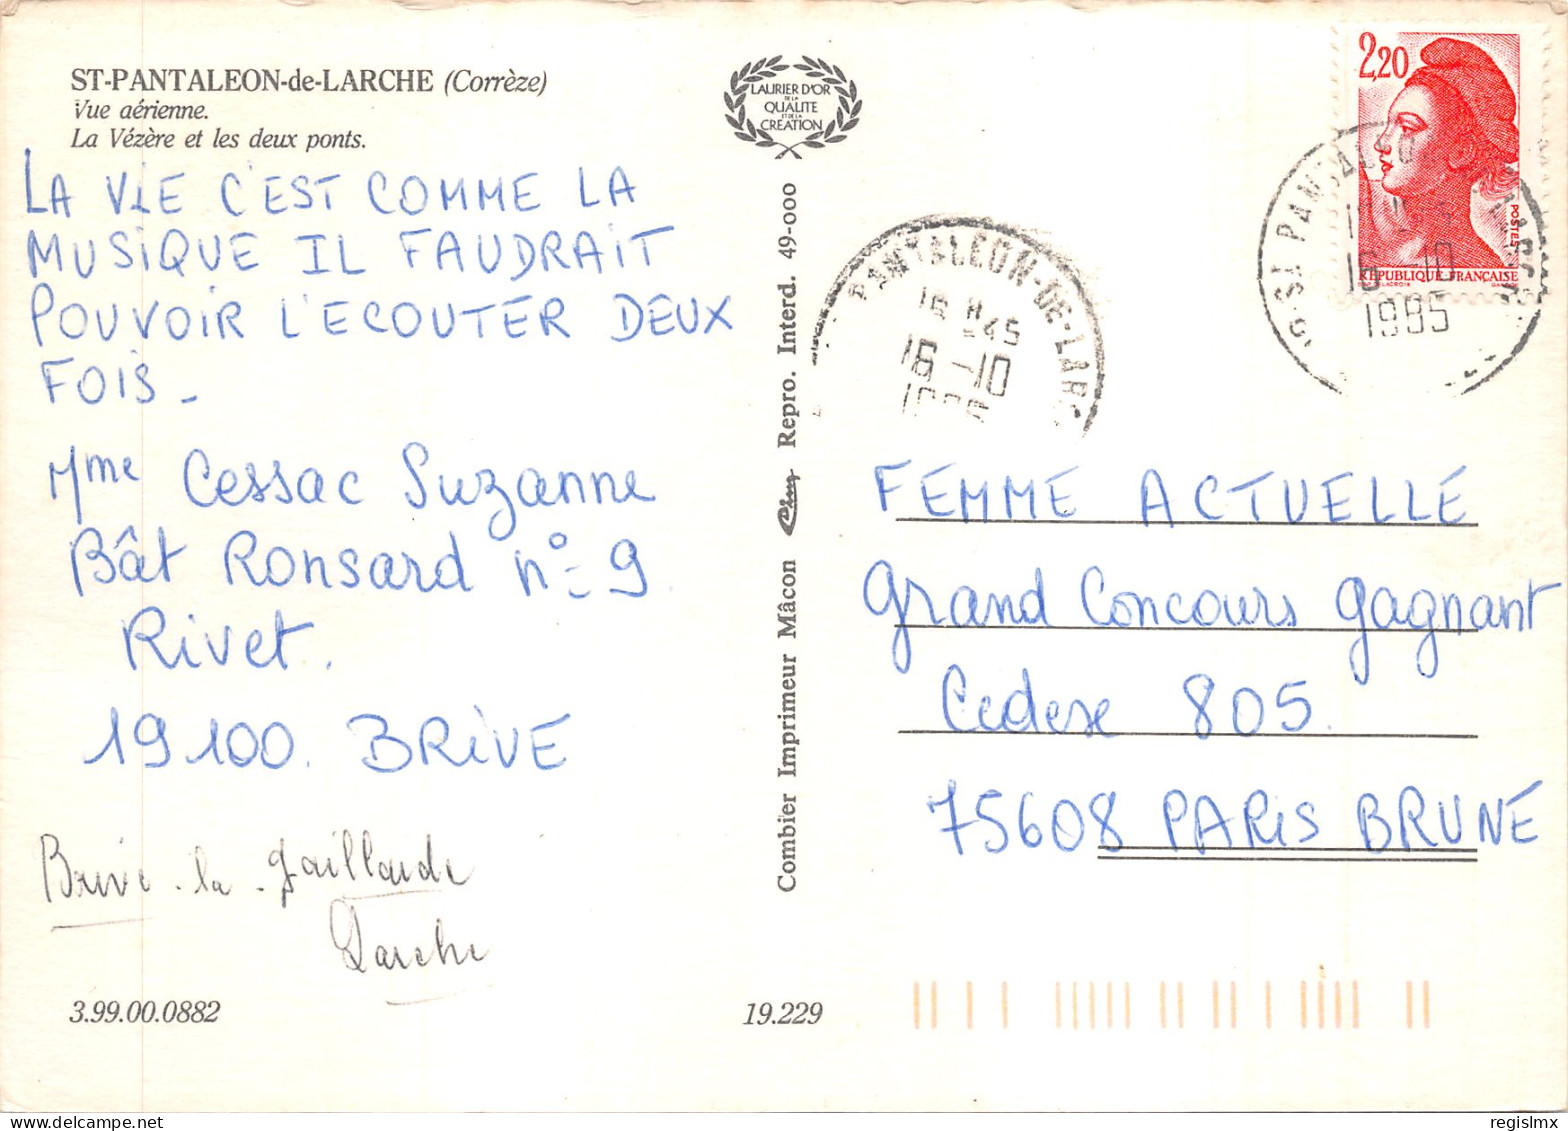 ST-PANTALEON-de-LARCHE (Corrèze)
Vue aérienne.
La Vézère et les deux ponts.
LA VIE C'EST COMME LA
MUSIQUE IL FAUDRAIT
POUVOIR L'ECOUTER DEUX
FOIS_
Mme Cessac Suzanne
Bât Ronsard n° 9
Rivet.
19100. BRIVE
Brive-la-gaillarde
Larche
3.99.00.0882
19.229
LAURIER D'OR
DE LA
QUALITE
ET DE LA
CREATION
Combier Imprimeur Mâcon Cim Repro. Interd. 49-000
PANTALEON-DE-LAR
16 H45
16-10
2,20
POSTES
REPUBLIQUE FRANÇAISE
ST PANTALEO
16-10
1985
FEMME ACTUELLE
Grand Concours gagnant
Cedexe 805.
75608 PARIS BRUNE
regislmx